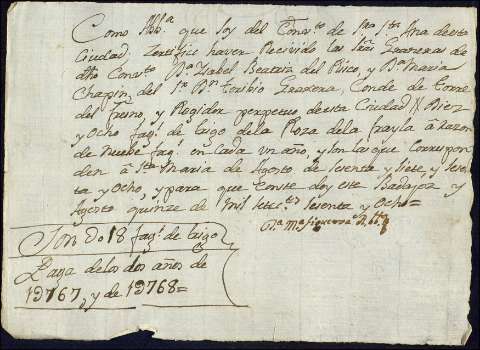 Como Abb.ª que soy del Conv.to de S.ra S.ta Ana de esta
Ciudad. Zertifico haver Recivido las Sras Granxeras de
dho Conv.to D.ª Ysabel Beatriz del Rico, y D.ª Maria
Chapin, del S.r D.n Toribio Grajera, Conde de Torre
del Fresno, y Rejidor perpetuo de esta Ciudad Diez
y Ocho fag.s de trigo de la Roza de la frayla â razon
de Nuebe fag.s en Cada un año, y son las que Correspon
den â S.ta Maria de Agosto de Sesenta y Siete, y Sesen
ta y Ocho, y para que Conste doy este Badajoz y
Agosto quinze de Mil Setez.tos Sesenta y Ocho=
M.ª Figueroa Abb.ª
Son Do 18 fag.s de trigo
Paga de los dos años de
1767, y de 1768=